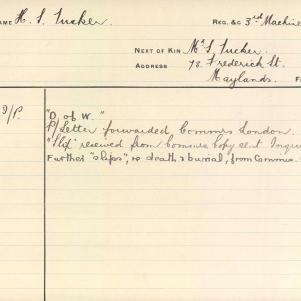 NAME H. S. Tucker. REG. &C 3rd Machine
NEXT OF KIN Mr S. Tucker.
ADDRESS 78. Frederick St.
Maylands.
"D. of W."
P/Letter forwarded Commrs London.
"Slip" received from Commrs Copy sent
Further "slips", re death & burial, from Commrs.